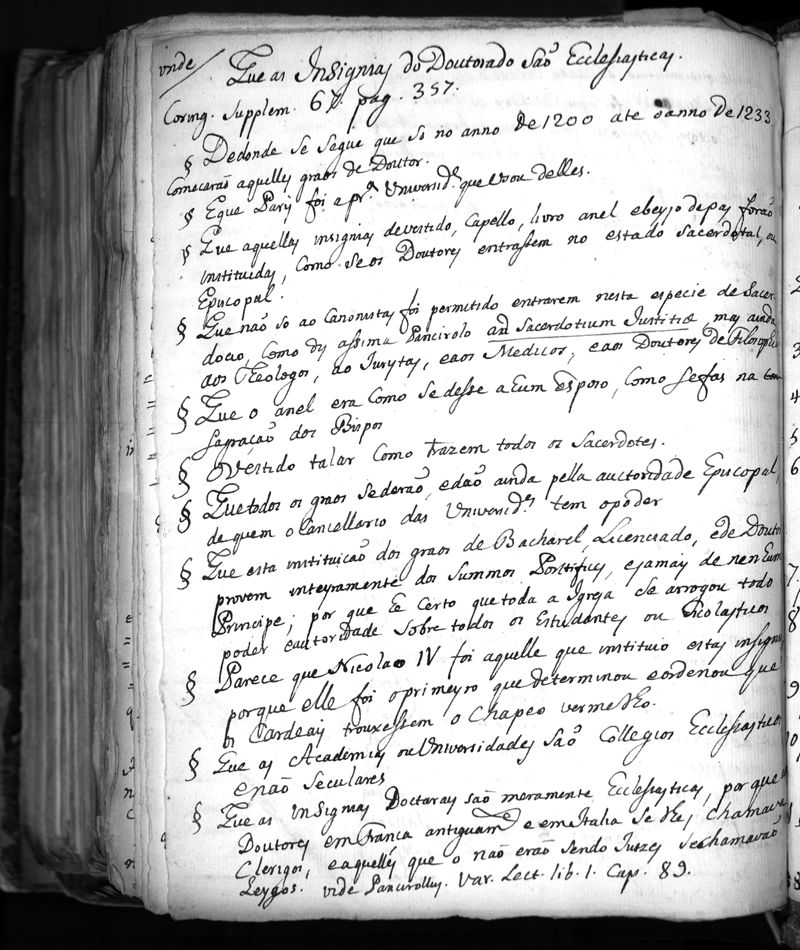 vnde/ Que as Insignias do Doutorado saõ Ecclesiasticas.
Coring. Supplem. 67. pag. 357.
§ Dedonde se segue que só no anno de 1200 ate o anno de 1233
Comecaraõ aquelles graos de Doutor.
§ E que Paris foi a pr.ª Universid.e que usou delles.
§ Que aquellas insignias de vestido, Capello, livro anel e beyjo de pas foraõ
instituidas, como se os Doutores entrassem no estado sacerdotal, ou
Episcopal.
§ Que naõ so ao Canonistas foi permitido entrarem nesta especie de Sacer-
docio, como dis assima Pancirolo ad Sacerdotium Justitiæ, mas ainda
aos Theologos, ao Jurystas, e aos Medicos, e aos Doutores de Filosophia
§ Que o anel era como se desse a hum esposo, como se fas na con-
sagraçaõ dos Bispos
§ O Vestido talar como trazem todos os Sacerdotes.
§ Que todos os graos se deraõ, e daõ ainda pella auctoridade Episcopal,
de quem o Cancellario das Universid.es tem o poder
§ Que esta instituicaõ dos graos de Bacharel, Licenciado, e de Doutor
provem inteyramente dos Summos Pontifices, e jamais de nenhum
Principe; por que he certo que toda a Igreja se arrogou todo
poder e autoridade sobre todos os Estudantes ou Escolasticos
§ Parece que Nicolao IV foi aquelle que instituio estas insignias
porque elle foi o primeyro que determinou e ordenou que
os Cardeais trouxessem o Chapeo vermelho.
§ Que as Academias ou Universidades saõ Collegios Ecclesiasticos
e naõ seculares
§ Que as Insignias Doctoraes saõ meramente Ecclesiasticas, por que
Doutores em França antiguam.e e em Italia se lhes chamava
Clerigos, e aquelles que o naõ eraõ sendo Juizes se chamavaõ
Leygos. vide Pancirollus. Var. Lect. lib. 1. Cap. 89.